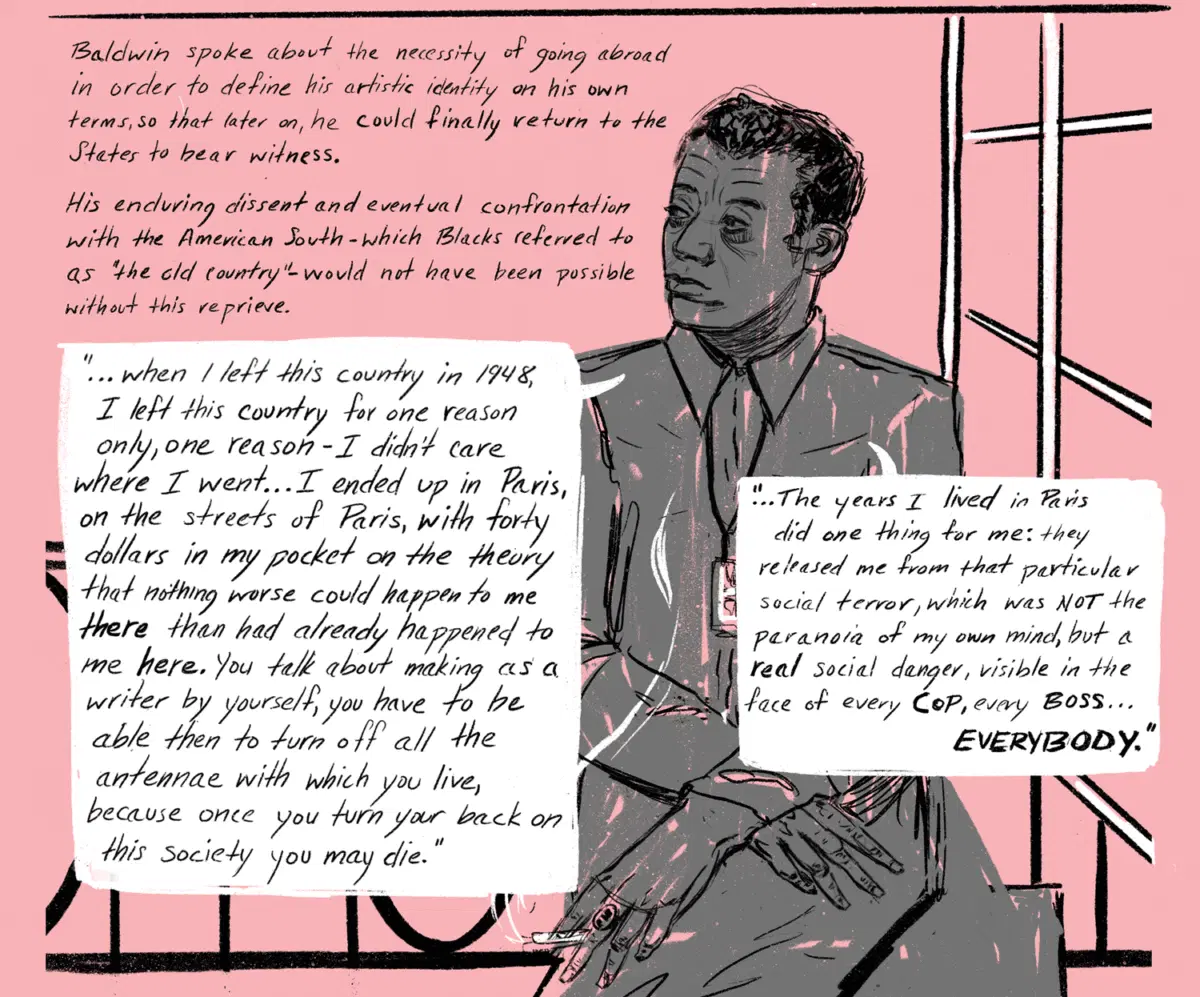 Baldwin spoke about the necessity of going abroad
in order to define his artistic identity on his own
terms, so that later on, he could finally return to the
States to bear witness.
His enduring dissent and eventual confrontation
with the American South-which Blacks referred to
as "the old country"-would not have been possible
without this reprieve.
"...when I left this country in 1948,
I left this country for one reason
only, one reason - I didn't care
where I went... I ended up in Paris,
on the streets of Paris, with forty
dollars in my pocket on the theory
that nothing worse could happen to me
there than had already happened to
me here. You talk about making as a
writer by yourself, you have to be
able then to turn off all the
antennae with which you live,
because once you turn your back on
this society you may die."
"...The years I lived in Paris
did one thing for me: they
released me from that particular
social terror, which was NOT the
paranoia of my own mind, but a
real social danger, visible in the
face of every COP, every BOSS...
EVERYBODY."